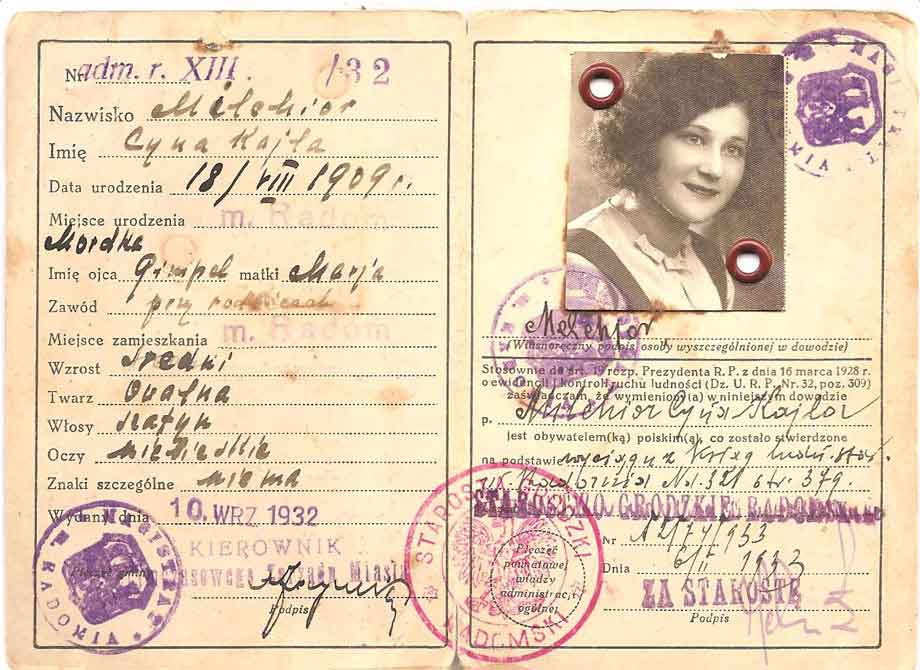 Nr adm. r. XIII /32
Nazwisko Melchior
Imię Cyna Kajla
Data urodzenia 18/VIII 1909 r.
Miejsce urodzenia m. Radom
Mordka
Imię ojca Gimpel matki Marja
Zawód przy rodzicach
Miejsce zamieszkania m. Radom
Wzrost średni
Twarz owalna
Włosy szatyn
Oczy niebieskie
Znaki szczególne niema
Wydany dnia 10. WRZ 1932
KIEROWNIK
Pieczęć gminy Miasta
Podpis
MAGISTRAT M. RADOMIA
Melchior
(Własnoręczny podpis osoby wyszczególnionej w dowodzie)
Stosownie do art. 19 rozp. Prezydenta R. P. z dnia 16 marca 1928 r.
o ewidencji i kontroli ruchu ludności (Dz. U. R. P. Nr. 32, poz. 309)
zaświadczam, że wymieniony(a) w niniejszym dowodzie
p. Melchior Cyna Kajla
jest obywatelem(ką) polskim(ą), co zostało stwierdzone
na podstawie wyciągu z ksiąg ludn. stał.
m. Radomia Nr. 321 str. 379.
STAROSTWO GRODZKIE RADOMSKIE
STAROSTA GRODZKI RADOMSKI
Pieczęć
powiatowej
władzy
administracji
ogólnej
Nr 12/74/933
Dnia 6/II 1933
ZA STAROSTĘ
Podpis